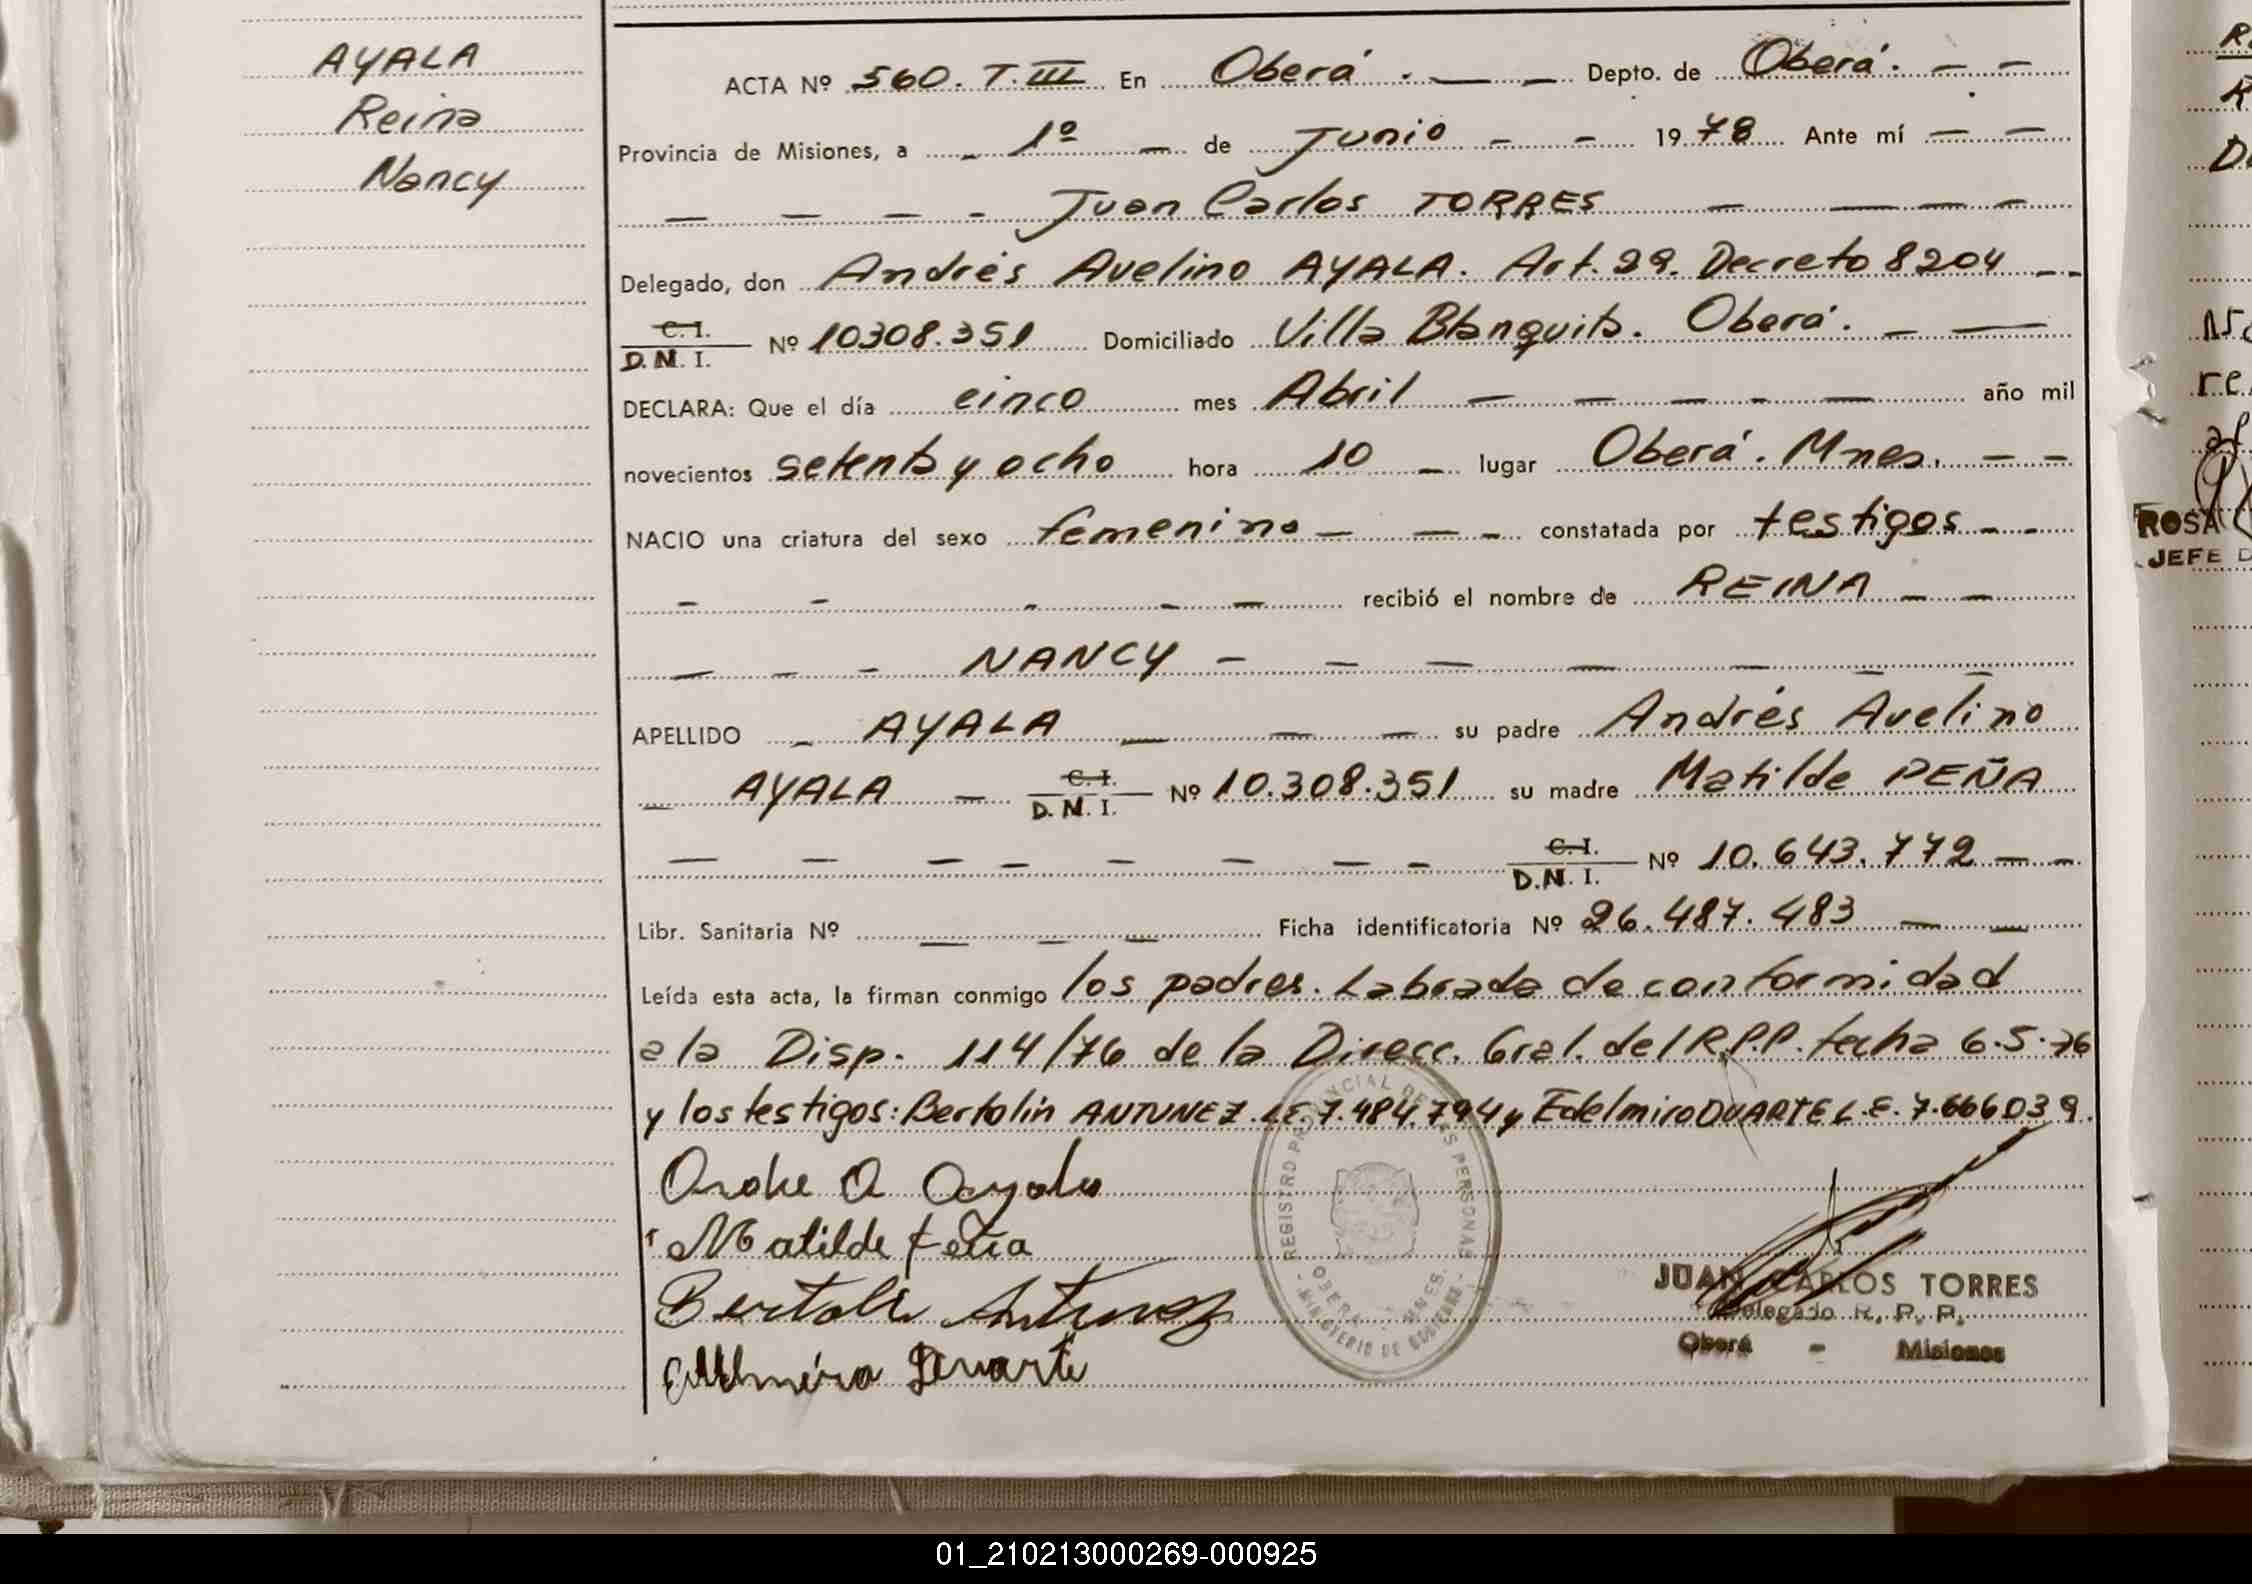 AYALA
Reina
Nancy
ACTA Nº 560. T. III En Oberá. — — Depto. de Oberá. — —
Provincia de Misiones, a - 1º — de Junio - - 1978 Ante mí — —
— — — - Juan Carlos TORRES — — — —
Delegado, don Andrés Avelino AYALA. Art. 29. Decreto 8204 --
C. I.
D. N. I. Nº 10308.351 Domiciliado Villa Blanquita. Oberá. — —
DECLARA: Que el día cinco mes Abril — — — - — año mil
novecientos setenta y ocho hora 10 - lugar Oberá. Mnes. — —
NACIO una criatura del sexo femenino — — - constatada por testigos - -
- - - - — recibió el nombre de REINA — —
— — - NANCY — — — — — — —
APELLIDO - AYALA — — — su padre Andrés Avelino
— AYALA — C. I.
D. N. I. Nº 10.308.351 su madre Matilde PEÑA
— — — — — — — — C. I.
D. N. I. Nº 10.643.772 — —
Libr. Sanitaria Nº — — — Ficha identificatoria Nº 26.487.483 — —
Leída esta acta, la firman conmigo los padres. Labrada de conformidad
a la Disp. 114/76 de la Direcc. Gral. del R.P.P. fecha 6.5.76
y los testigos: Bertolin ANTUNEZ. L.E. 7.484.794 y Edelmiro DUARTE L.E. 7.666039.
Matilde Peña
Antunez
Duarte
REGISTRO PROVINCIAL DE LAS PERSONAS
OBERA - MNES.
MINISTERIO DE GOBIERNO
JUAN CARLOS TORRES
Delegado R. P. P.
Oberá - Misiones
ROSA
JEFE D
01_210213000269-000925